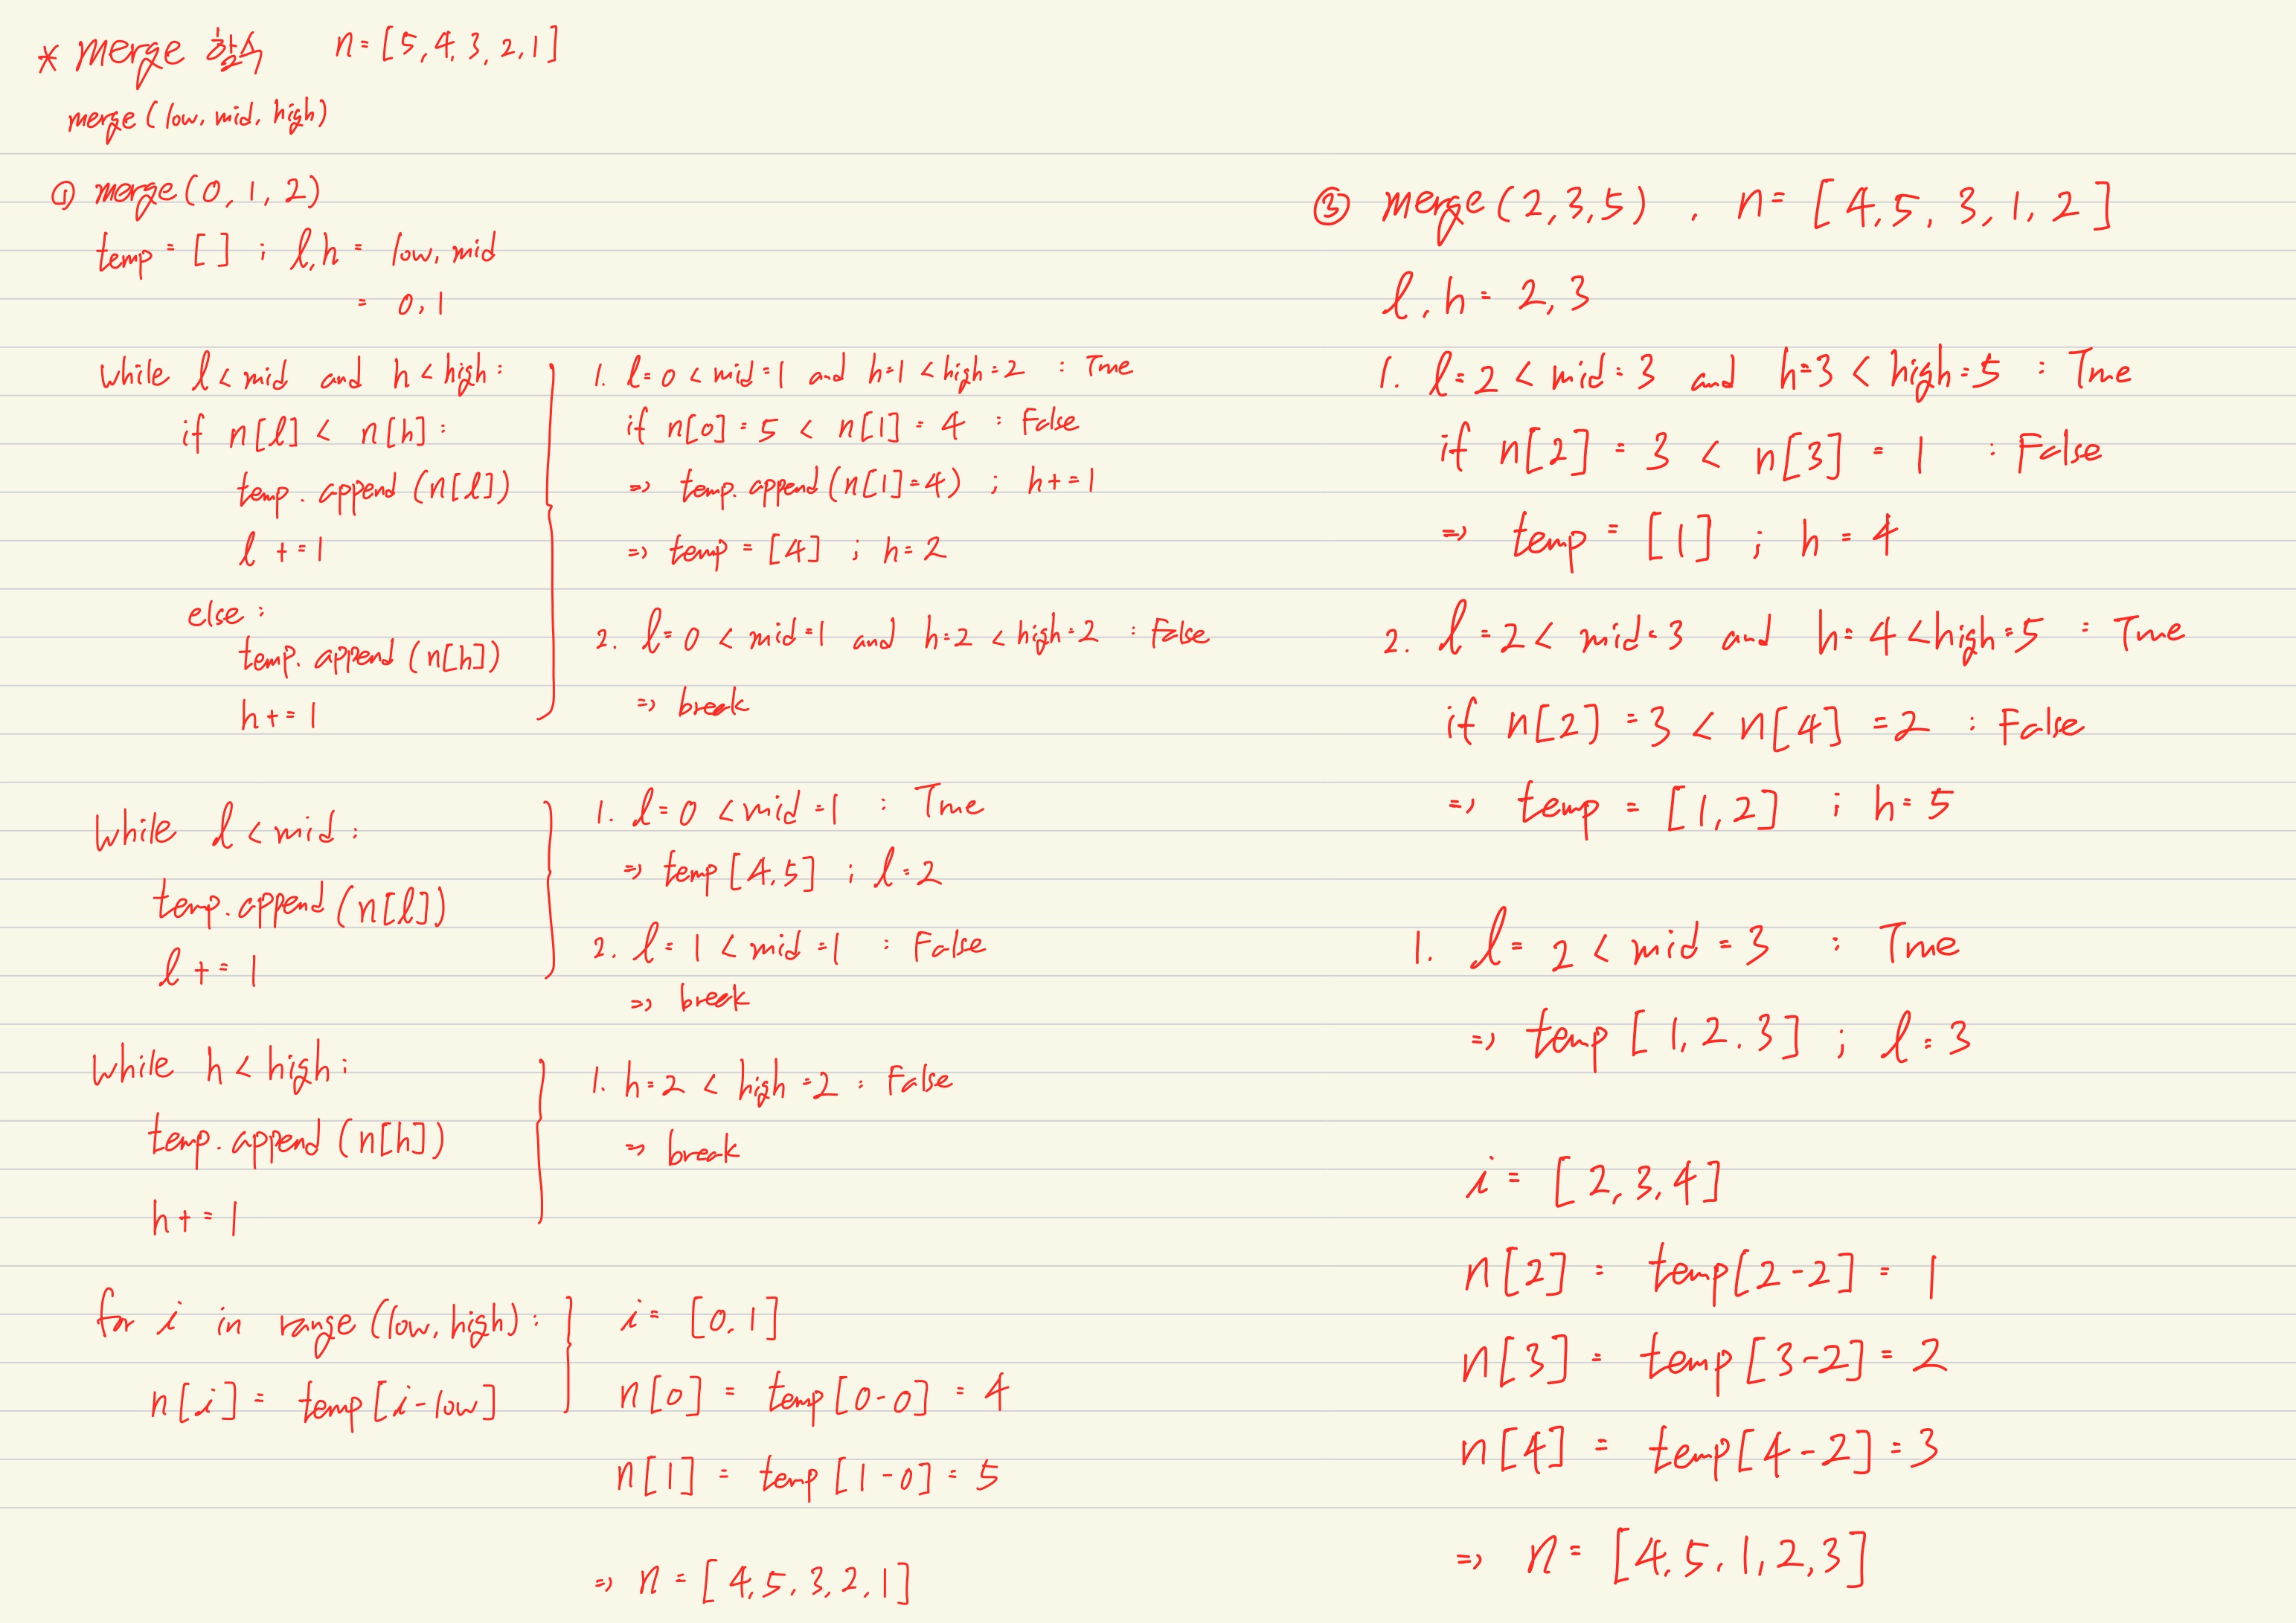 * merge 함수 n=[5,4,3,2,1]
merge(low, mid, high)
① merge(0, 1, 2)
temp = [] ; l,h = low, mid
= 0, 1
while l < mid and h < high:
if n[l] < n[h]:
temp.append(n[l])
l += 1
else:
temp.append(n[h])
h += 1
1. l=0 < mid=1 and h=1 < high=2 : True
if n[0]=5 < n[1]=4 : False
=> temp.append(n[1]=4) ; h+=1
=> temp = [4] ; h=2
2. l=0 < mid=1 and h=2 < high=2 : False
=> break
while l < mid:
temp.append(n[l])
l += 1
1. l=0 < mid=1 : True
=> temp[4,5] ; l=2
2. l=1 < mid=1 : False
=> break
while h < high:
temp.append(n[h])
h += 1
1. h=2 < high=2 : False
=> break
for i in range(low, high):
n[i] = temp[i-low]
i = [0,1]
n[0] = temp[0-0] = 4
n[1] = temp[1-0] = 5
=> n = [4,5,3,2,1]
③ merge(2,3,5) . n= [4,5,3,1,2]
l,h = 2,3
1. l=2 < mid=3 and h=3 < high=5 : True
if n[2] = 3 < n[3] = 1 : False
=> temp = [1] ; h = 4
2. l=2 < mid=3 and h=4 < high=5 : True
if n[2] = 3 < n[4] = 2 : False
=> temp = [1,2] ; h=5
1. l=2 < mid=3 : True
=> temp[1,2,3] ; l=3
i = [2,3,4]
n[2] = temp[2-2] = 1
n[3] = temp[3-2] = 2
n[4] = temp[4-2] = 3
=> n = [4,5,1,2,3]